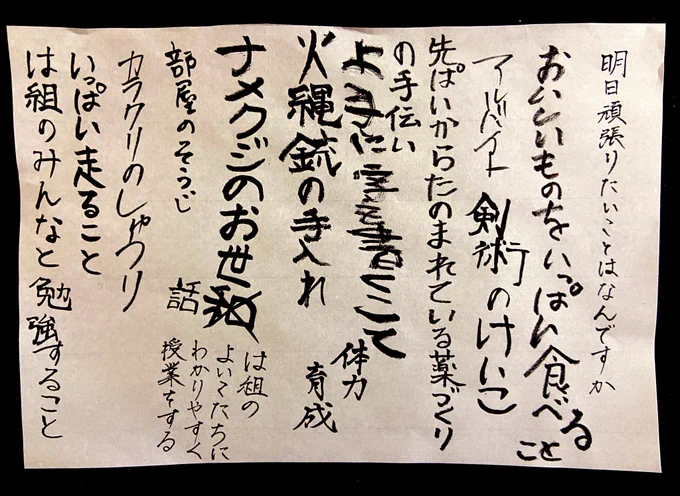 明日頑張りたいことはなんですか
おいしいものをいっぱい食べる
こと
アルバイト
剣術のけいこ
先ぱいからたのまれている薬づくり
の手伝い
よ手に字を書くこて
体力
育成
火縄銃の手入れ
ナメクジのお世
話
は組の
よいこたちに
わかりやすく
授業をする
部屋のそうじ
カラクリのしゅうり
いっぱい走ること
は組のみんなと勉強すること